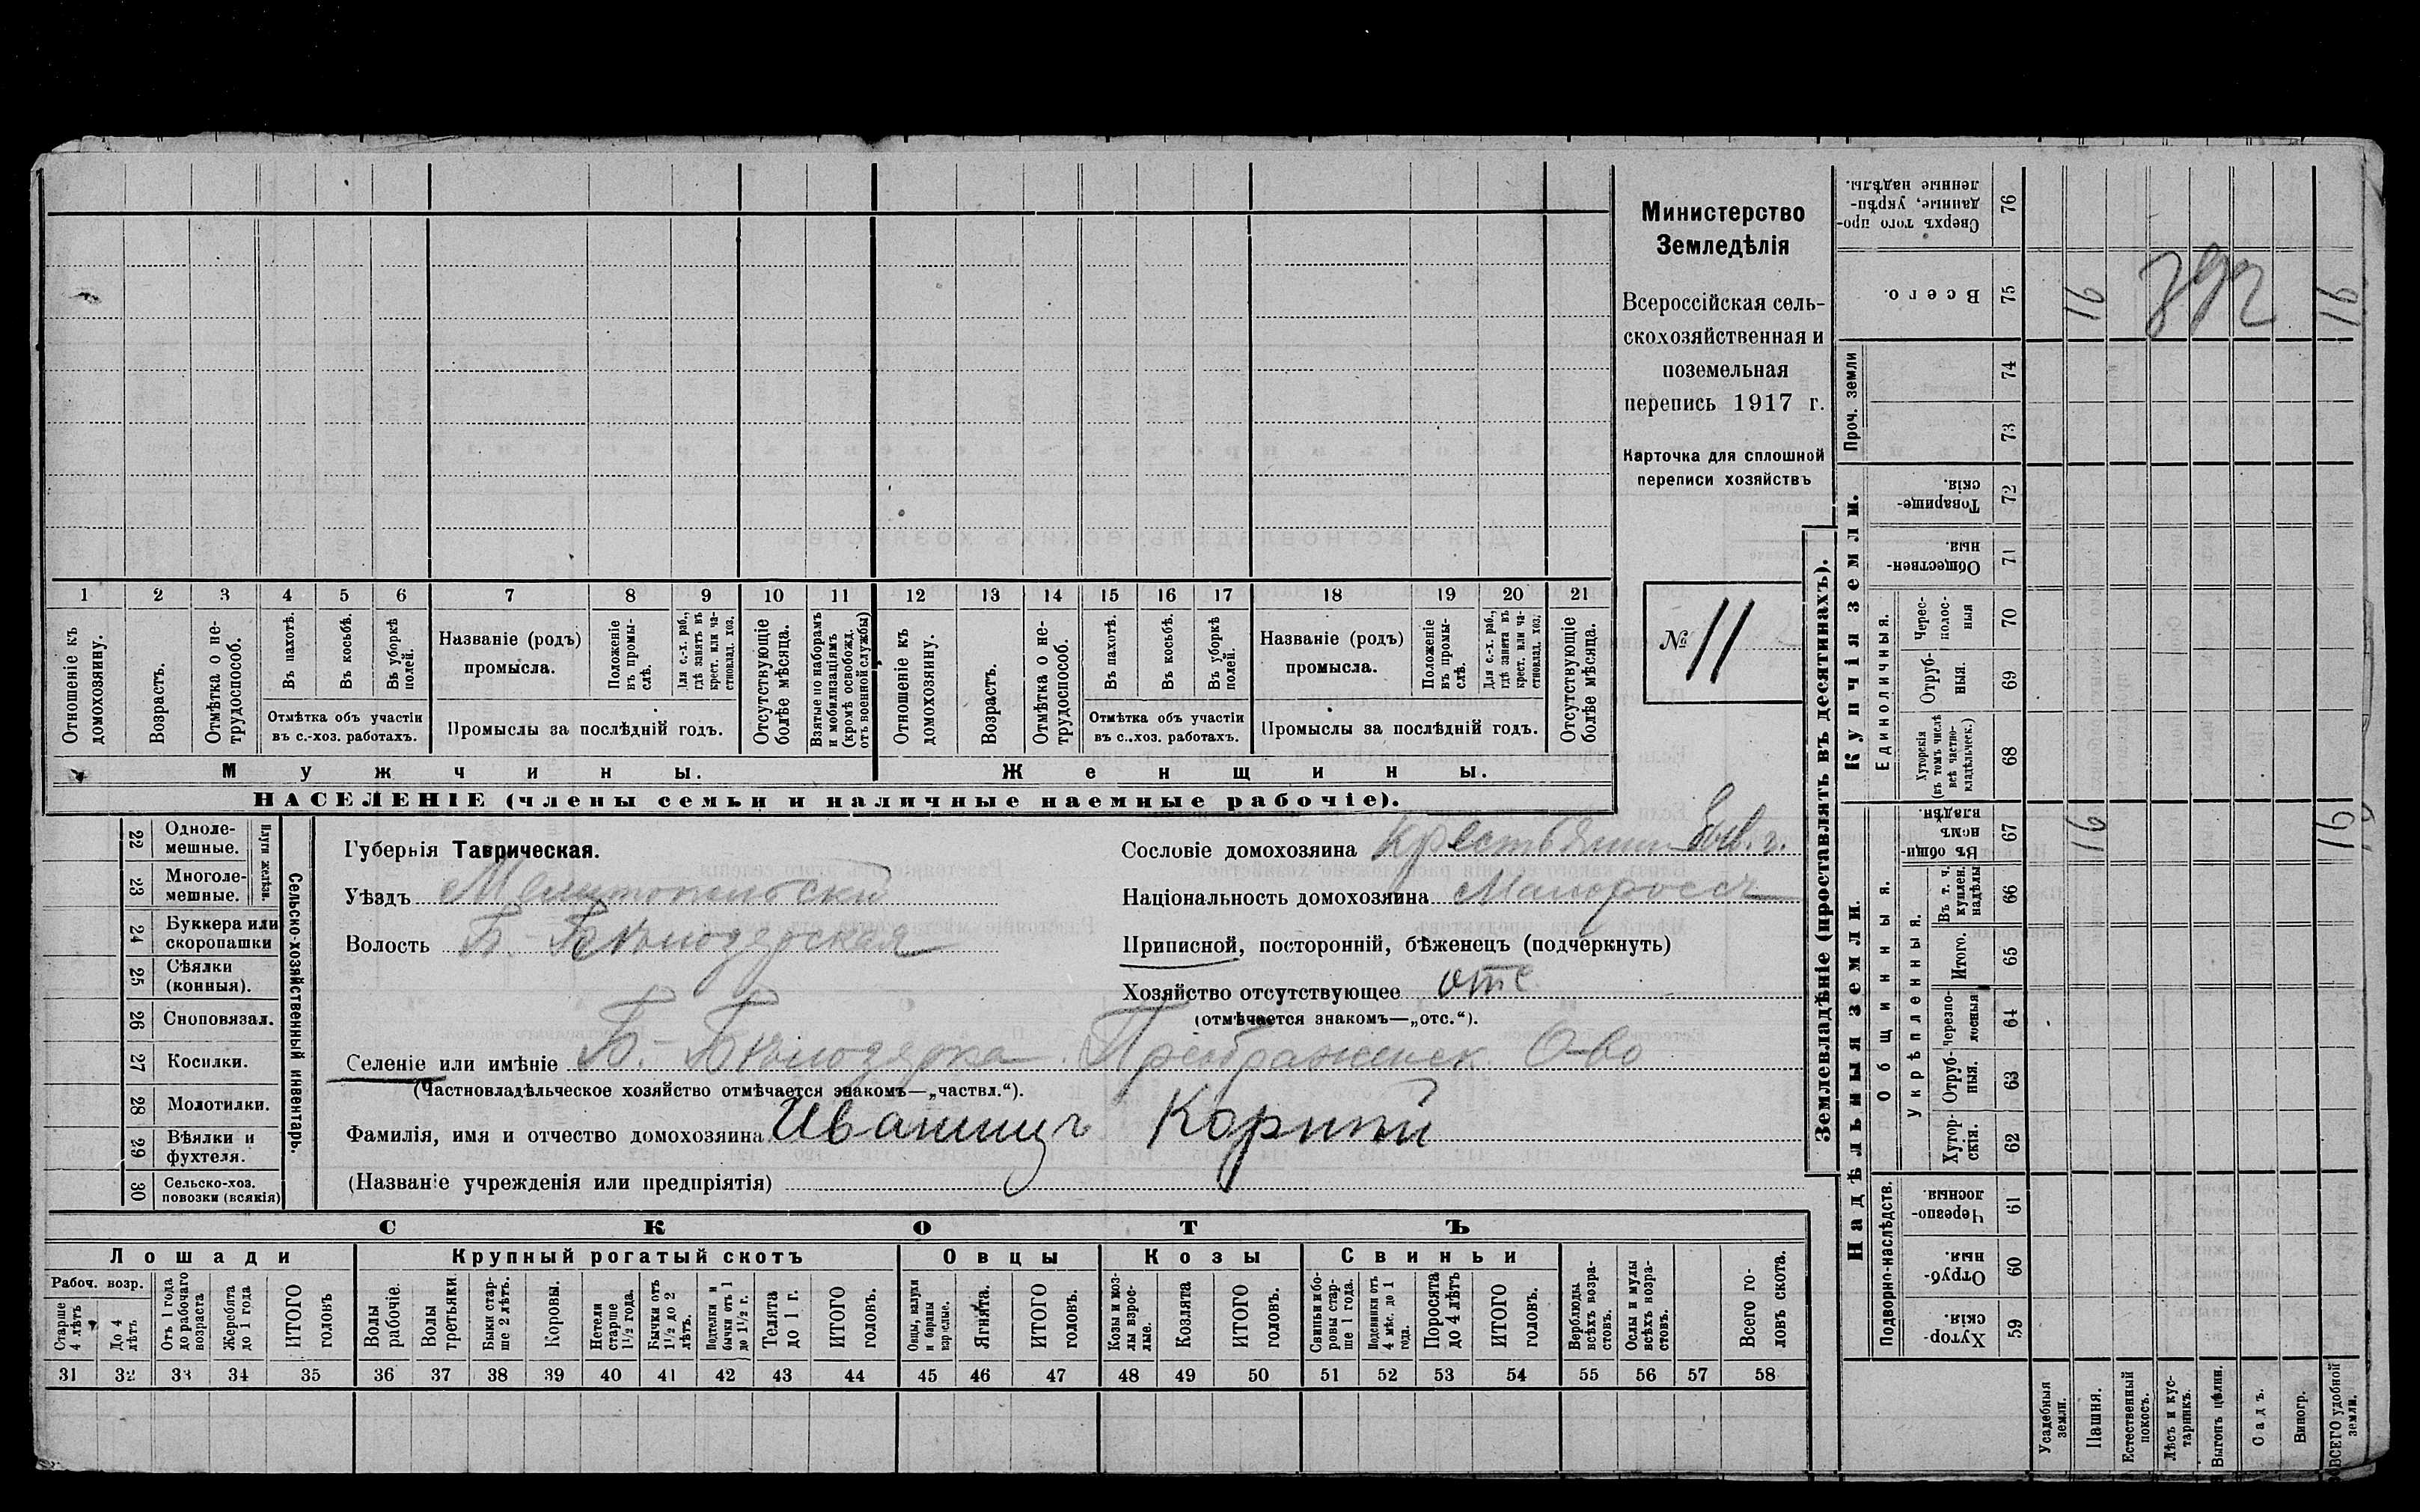 Министерство
Земледѣлія
Всероссійская сель-
скохозяйственная и
поземельная
перепись 1917 г.
Карточка для сплошной
переписи хозяйствъ
№ 11
1 2 3 4 5 6 7 8 9 10 11 12 13 14 15 16 17 18 19 20 21
Отношеніе къ домохозяину.
Возрастъ.
Отмѣтка о не-трудоспособ.
Въ пахотѣ.
Въ косьбѣ.
Въ уборкѣ полей.
Отмѣтка объ участіи
въ с.-хоз. работахъ.
Названіе (родъ)
промысла.
Положеніе въ промы-слѣ.
Для с.-х. раб., гдѣ занятъ въ крест. или ча-стновлад. хоз.
Промыслы за послѣдній годъ.
Отсутствующіе болѣе мѣсяца.
Взятые по наборамъ и мобилизаціямъ (кромѣ освобожд. отъ военной службы)
Отношеніе къ домохозяину.
Возрастъ.
Отмѣтка о не-трудоспособ.
Въ пахотѣ.
Въ косьбѣ.
Въ уборкѣ полей.
Отмѣтка объ участіи
въ с.-хоз. работахъ.
Названіе (родъ)
промысла.
Положеніе въ промы-слѣ.
Для с.-х. раб., гдѣ занята въ крест. или ча-стновлад. хоз.
Промыслы за послѣдній годъ.
Отсутствующіе болѣе мѣсяца.
Мужчины.
Женщины.
НАСЕЛЕНІЕ (члены семьи и наличные наемные рабочіе).
Сельско-хозяйственный инвентарь.
Плуги желѣзн.
22 Одноле-мешные.
23 Многоле-мешные.
24 Буккера или скоропашки
25 Сѣялки (конныя).
26 Сноповязал.
27 Косилки.
28 Молотилки.
29 Вѣялки и фухтеля.
30 Сельско-хоз. повозки (всякія)
Губернія Таврическая.
Уѣздъ Мелитопольскій
Волость Б.-Бѣлозерская
Сословіе домохозяина Крестьянин
Національность домохозяина Малороссъ
Приписной, посторонній, бѣженецъ (подчеркнуть)
Хозяйство отсутствующее отс
(отмѣчается знакомъ—„отс.“).
Селеніе или имѣніе Б.-Бѣлозерка. Преображенск. О-во
(Частновладѣльческое хозяйство отмѣчается знакомъ—„частвл.“).
Фамилія, имя и отчество домохозяина Иваницъ Корній
(Названіе учрежденія или предпріятія)
СКОТЪ
Лошади
Крупный рогатый скотъ
Овцы
Козы
Свиньи
Рабоч. возр.
Старше 4 лѣтъ
До 4 лѣтъ
Отъ 1 года до рабочаго возраста
Жеребята до 1 года
ИТОГО головъ
Волы рабочіе.
Волы третьяки
Быки стар-ше 2 лѣтъ.
Коровы.
Нетели старше 1½ года.
Бычки отъ 1½ до 2 лѣтъ.
Подтелки и бычки отъ 1 до 1½ г.
Телята до 1 г.
ИТОГО головъ.
Овцы, валухи и бараны взрослые.
Ягнята.
ИТОГО головъ.
Козы и коз-лы взрос-лые.
Козлята
ИТОГО головъ.
Свиньи и бо-ровы стар-ше 1 года.
Подсвинки отъ 4 мѣс. до 1 года.
Поросята до 4 лѣтъ
ИТОГО головъ.
Верблюды всѣхъ возра-стовъ.
Ослы и мулы всѣхъ возра-стовъ.
Всего го-ловъ скота.
31 32 33 34 35 36 37 38 39 40 41 42 43 44 45 46 47 48 49 50 51 52 53 54 55 56 57 58
Землевладѣніе (проставлять въ десятинахъ).
Сверхъ того про-данные, укрѣп-ленные надѣлы. 76
Всего. 75 16 16
Проч. земли 74
73
Купчія земли.
Товарище-скія. 72
Обществен-ныя. 71
Единоличныя.
Черес-полос-ныя 70
Отруб-ныя. 69
Хуторскія (въ томъ числѣ всѣ частно-владѣльческ.) 68
Надѣльныя земли.
Общинныя.
Въ общин-номъ владѣн. 67 16 16
Укрѣпленныя.
Въ т. ч. куплен. надѣлы 66
Итого. 65
Черезпо-лосныя 64
Отруб-ныя. 63
Хутор-скія. 62
Подворно-наслѣдств.
Черезпо-лосныя. 61
Отруб-ныя. 60
Хутор-скія. 59
Усадебныя земли.
Пашня.
Естественный покосъ.
Лѣсъ и кус-тарникъ.
Выгонъ цѣлин.
Садъ.
Виногр.
ВСЕГО удобной земли.